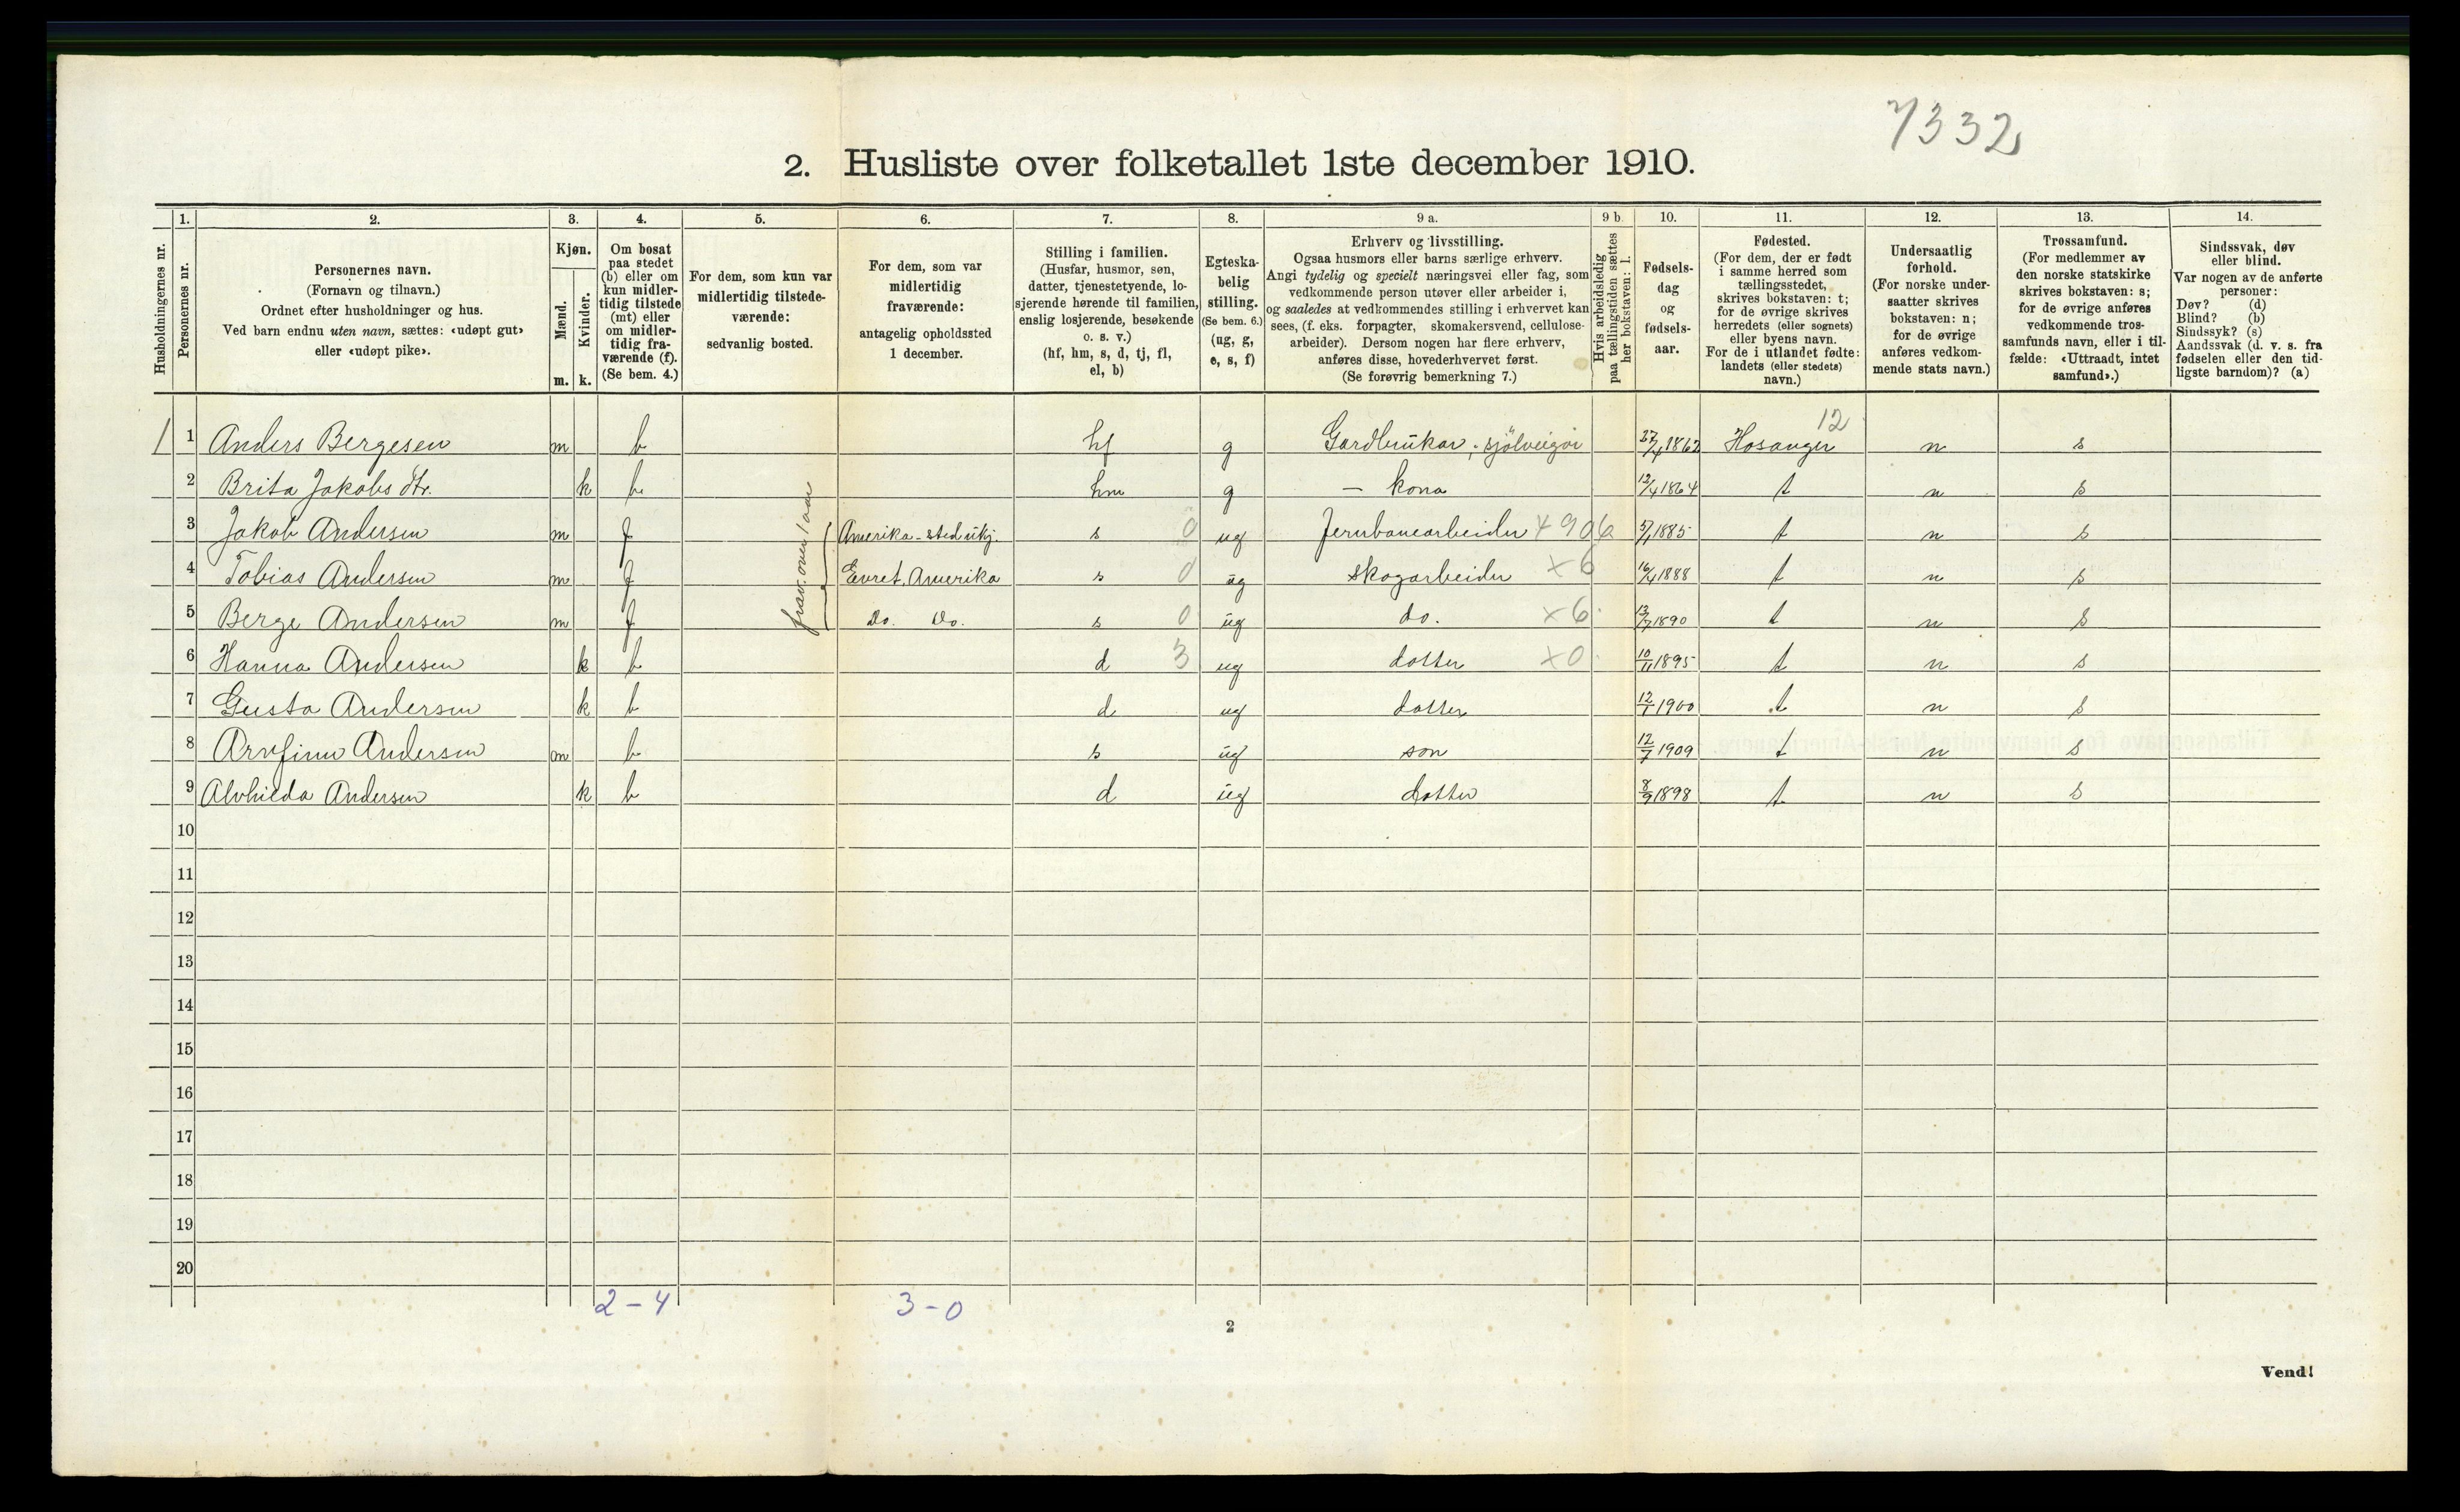 7332
2. Husliste over folketallet 1ste december 1910.
Husholdningernes nr.
1. Personernes nr.
2. Personernes navn.
(Fornavn og tilnavn.)
Ordnet efter husholdninger og hus.
Ved barn endnu uten navn, sættes: «udøpt gut»
eller «udøpt pike».
3. Kjøn.
Mænd. m.
Kvinder. k.
4. Om bosat
paa stedet
(b) eller om
kun midler-
tidig tilstede
(mt) eller
om midler-
tidig fra-
værende (f).
(Se bem. 4.)
5. For dem, som kun var
midlertidig tilstede-
værende:
sedvanlig bosted.
6. For dem, som var
midlertidig
fraværende:
antagelig opholdssted
1 december.
7. Stilling i familien.
(Husfar, husmor, søn,
datter, tjenestetyende, lo-
sjerende hørende til familien,
enslig losjerende, besøkende
o. s. v.)
(hf, hm, s, d, tj, fl,
el, b)
8. Egteska-
belig
stilling.
(Se bem. 6.)
(ug, g,
e, s, f)
9 a. Erhverv og livsstilling.
Ogsaa husmors eller barns særlige erhverv.
Angi tydelig og specielt næringsvei eller fag, som
vedkommende person utøver eller arbeider i,
og saaledes at vedkommendes stilling i erhvervet kan
sees, (f. eks. forpagter, skomakersvend, cellulose-
arbeider). Dersom nogen har flere erhverv,
anføres disse, hovederhvervet først.
(Se forøvrig bemerkning 7.)
9 b. Hvis arbeidsledig
paa tællingstiden sættes
her bokstaven: l.
10. Fødsels-
dag
og
fødsels-
aar.
11. Fødested.
(For dem, der er født
i samme herred som
tællingsstedet,
skrives bokstaven: t;
for de øvrige skrives
herredets (eller sognets)
eller byens navn.
For de i utlandet fødte:
landets (eller stedets)
navn.)
12. Undersaatlig
forhold.
(For norske under-
saatter skrives
bokstaven: n;
for de øvrige
anføres vedkom-
mende stats navn.)
13. Trossamfund.
(For medlemmer av
den norske statskirke
skrives bokstaven: s;
for de øvrige anføres
vedkommende tros-
samfunds navn, eller i til-
fælde: «Uttraadt, intet
samfund».)
14. Sindssvak, døv
eller blind.
Var nogen av de anførte
personer:
Døv? (d)
Blind? (b)
Sindssyk? (s)
Aandssvak (d. v. s. fra
fødselen eller den tid-
ligste barndom)? (a)
12
1 1 Anders Bergesen m b hf g Gardbrukar, sjölveigar 27/4 1862 Hosanger n s
2 Brita Jakobs dtr. k b hm g — kona 12/4 1864 t n s
frav. over 1 aar
3 Jakob Andersen m f Amerika - sted ukj. s 0 ug Jernbanearbeider 4906 5/1 1885 t n s
4 Tobias Andersen m f Evret, Amerika s 0 ug skogarbeider ×6 16/4 1888 t n s
5 Berge Andersen m f Do. Do. s 0 ug do. ×6 13/7 1890 t n s
6 Hanna Andersen k b d 3 ug dotter ×0 10/11 1895 t n s
7 Gusta Andersen k b d ug dotter 12/1 1900 t n s
8 Arnfinn Andersen m b s ug son 12/7 1909 t n s
9 Alvhilda Andersen k b d ug dotter 8/9 1898 t n s
10
11
12
13
14
15
16
17
18
19
20
2 – 4 3 – 0
2
Vend!